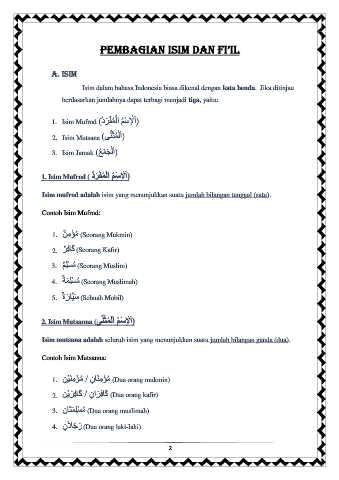 PEMBAGIAN ISIM DAN FI'IL
A. ISIM
Isim dalam bahasa Indonesia biasa dikenal dengan kata benda. Jika ditinjau
berdasarkan jumlahnya dapat terbagi menjadi tiga, yaitu:
1. Isim Mufrod (اَلْإِسْمُ الْمُفْرَدُ)
2. Isim Mutsana (الْمُثَنَّى)
3. Isim Jamak (الْجَمْعُ)
1. Isim Mufrod ( اَلْإِسْمُ الْمُفْرَدُ)
Isim mufrod adalah isim yang menunjukkan suatu jumlah bilangan tunggal (satu).
Contoh Isim Mufrod:
1. مُؤْمِنٌ (Seorang Mukmin)
2. كَافِرٌ (Seorang Kafir)
3. مُسْلِمٌ (Seorang Muslim)
4. مُسْلِمَةٌ (Seorang Muslimah)
5. سَيَّارَةٌ (Sebuah Mobil)
2. Isim Mutsanna (اَلْإِسْمُ الْمُثَنَّى)
Isim mutsana adalah seluruh isim yang menunjukkan suatu jumlah bilangan ganda (dua).
Contoh Isim Mutsana:
1. مُؤْمِنَانِ / مُؤْمِنَيْنِ (Dua orang mukmin)
2. كَافِرَانِ / كَافِرَيْنِ (Dua orang kafir)
3. مُسْلِمَتَانِ (Dua orang muslimah)
4. رَجُلَانِ (Dua orang laki-laki)
2